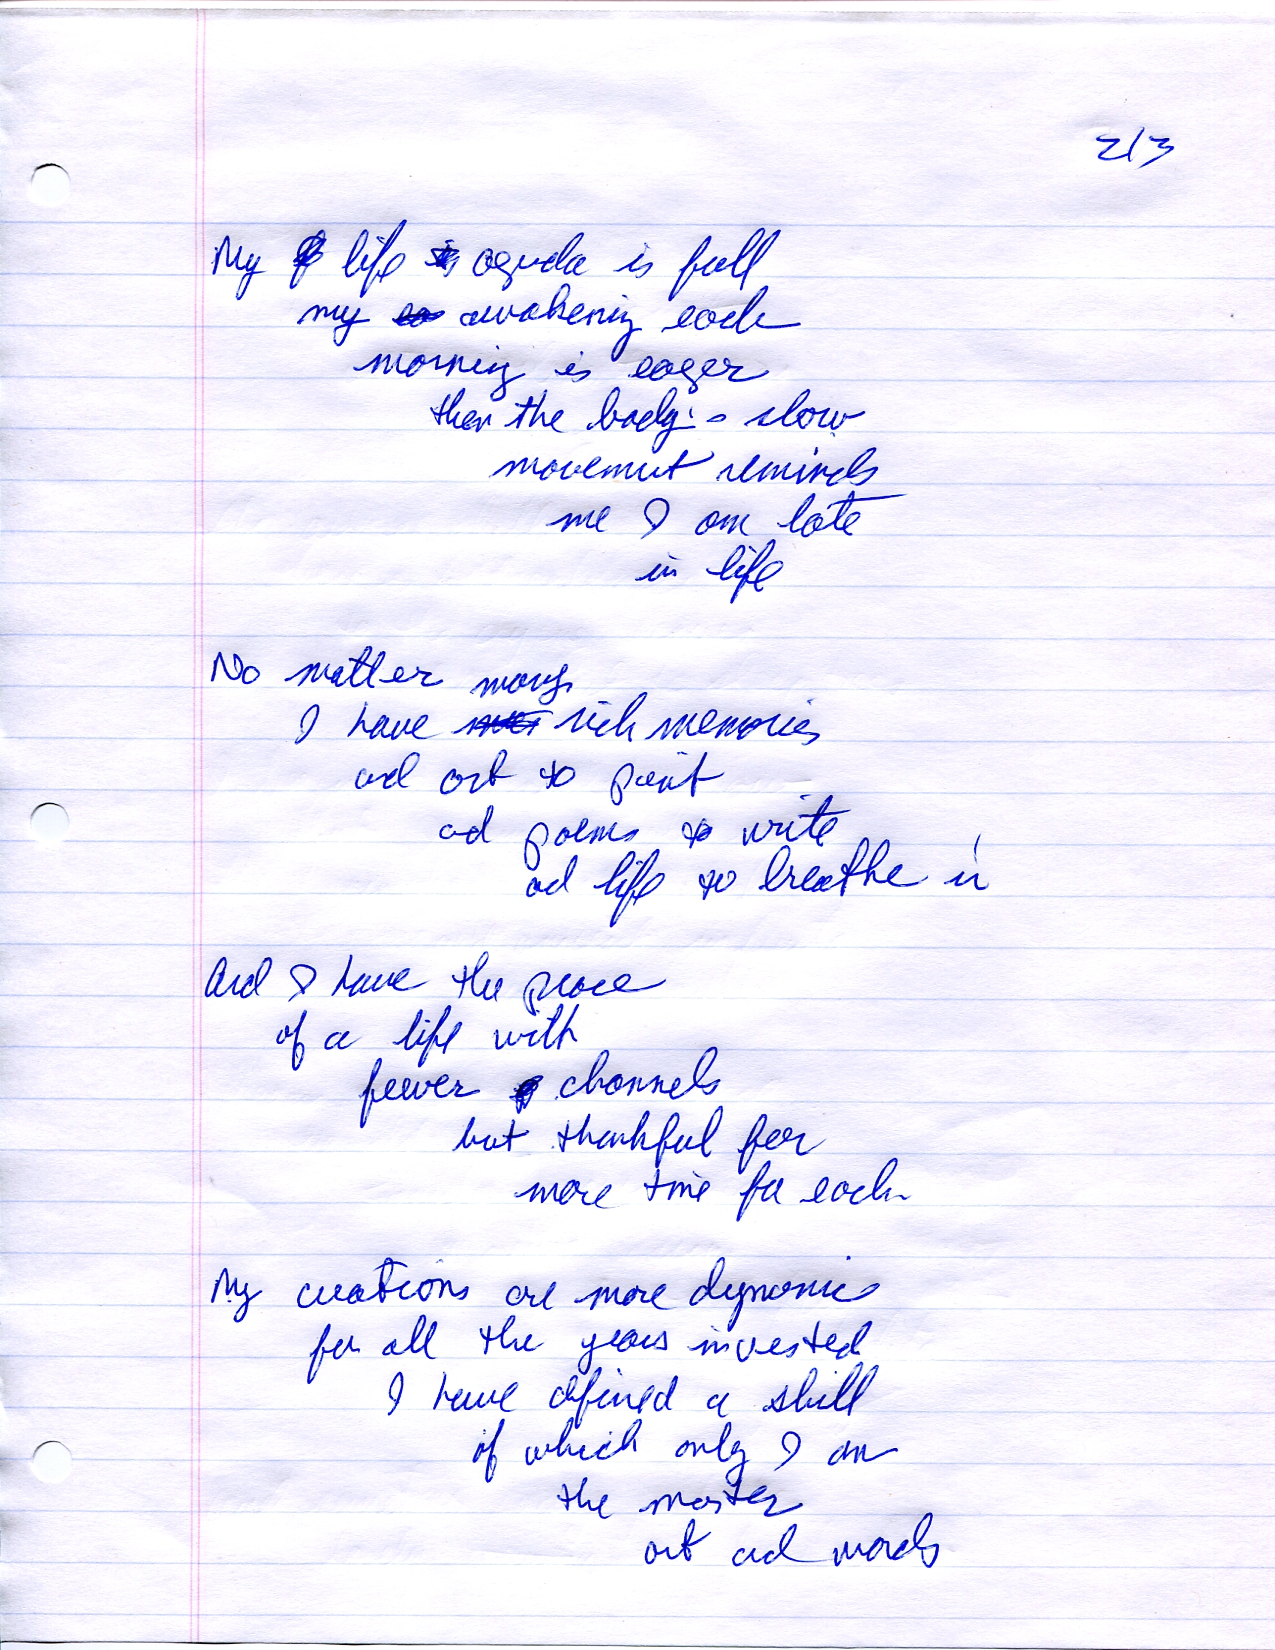 2/3
My life agenda is full
my awakening each
morning is eager
then the body's slow
movement reminds
me I am late
in life
No matter many
I have rich memories
and art to paint
and poems to write
and life to breathe in
And I have the peace
of a life with
fewer channels
but thankful for
more time for each
My creations are more dynamic
for all the years invested
I have defined a skill
of which only I am
the master
art and words